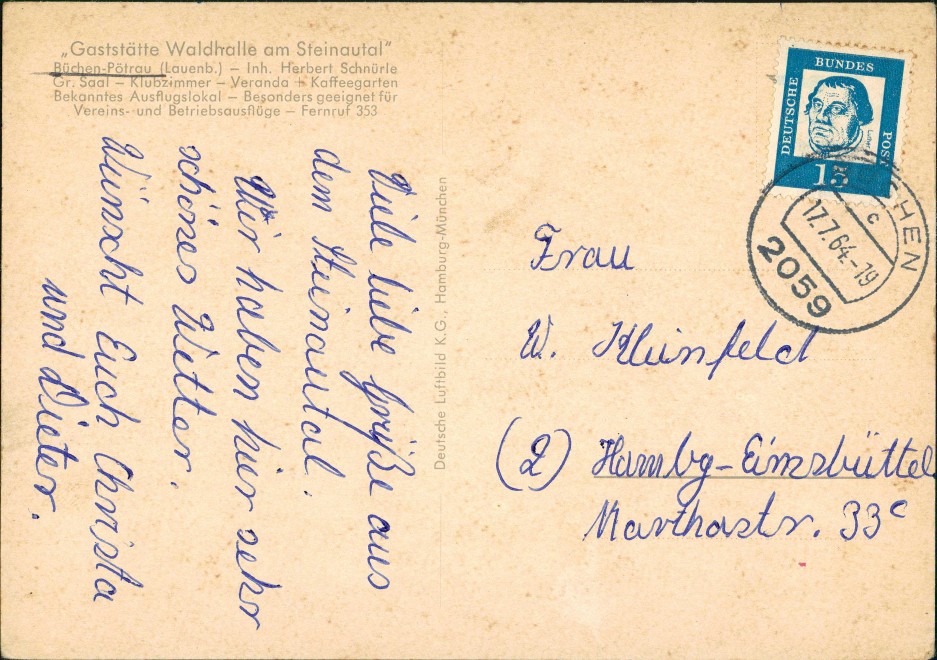 „Gaststätte Waldhalle am Steinautal“
Büchen-Pötrau (Lauenb.) – Inh. Herbert Schnürle
Gr. Saal – Klubzimmer – Veranda + Kaffeegarten
Bekanntes Ausflugslokal – Besonders geeignet für
Vereins- und Betriebsausflüge – Fernruf 353
Viele liebe Grüße aus
dem Steinautal.
Wir haben hier sehr
schönes Wetter.
Wünscht Euch Christa
und Dieter.
Deutsche Luftbild K.G., Hamburg-München
DEUTSCHE
BUNDES
POST
Luther
15
CHEN
c
17.7.64.-19
2059
Frau
W. Kleinfeld
(2) Hambg-Eimsbüttel
Marthastr. 33c